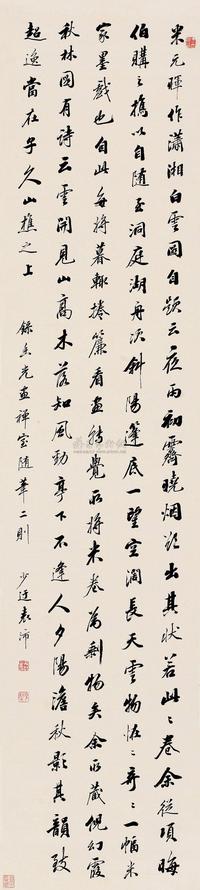 米元暉作瀟湘白雲圖自題云夜雨初霽曉烟欲出其狀若此〻卷余從項晦
伯購之攜以自隨至洞庭湖舟次斜陽篷底一望空闊長天雲物恠〻奇〻一幅米
家墨戲也自此每將暮輒捲簾看畫轉覺所將米卷為剩物矣余所藏倪幻霞
秋林圖有詩云雲開見山高木落知風勁亭下不逢人夕陽澹秋影其韻致
超逸當在子久山樵之上
錄香光畫禪室隨筆二則
少迂袁沛